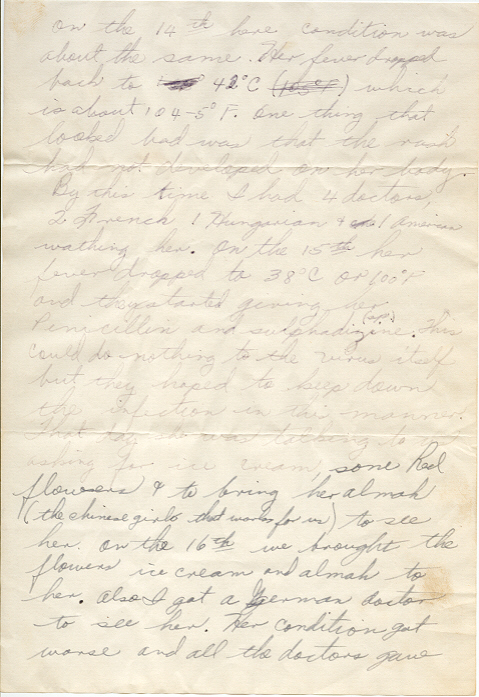 on the 14th here condition was
about the same. Her fever dropped
back to 42°C (105°F) which
is about 104-5°F. One thing that
looked bad was that the rash
had not developed on her body.
By this time I had 4 doctors,
2 French 1 Hungarian + 1 American
wathing her. On the 15th her
fever dropped to 38°C or 100°F
and they started giving her
Penicillin and sulphadizine. (sp) This
could do nothing to the virus itself
but they hoped to keep down
the infection in this manner.
That day she was talking to us
asking for ice cream, some Red
flowers & to bring her almah
(the chinese girls that works for us) to see
her. On the 16th we brought the
flowers ice cream and almah to
her. Also I got a German doctor
to see her. Her condition got
worse and all the doctors gave